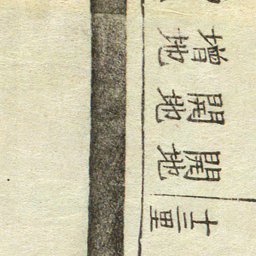 十三里
開地
開地
增地